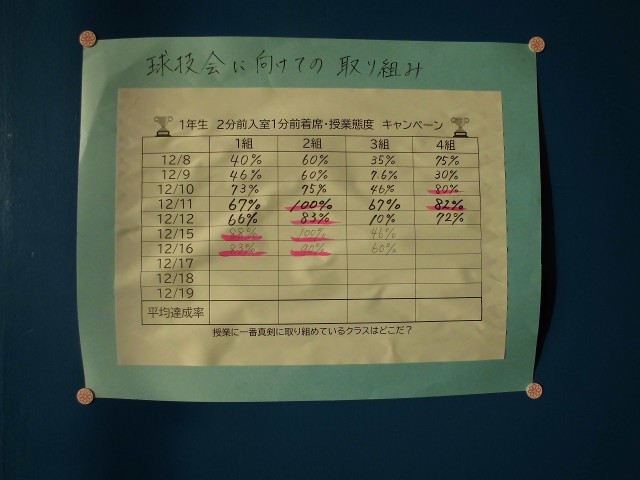 球技会に向けての取り組み
1年生 2分前入室1分前着席・授業態度 キャンペーン
1組 2組 3組 4組
12/8 40% 60% 35% 75%
12/9 46% 60% 7.6% 30%
12/10 73% 75% 46% 80%
12/11 67% 100% 67% 82%
12/12 66% 83% 10% 72%
12/15 88% 100% 46%
12/16 83% 90% 60%
12/17
12/18
12/19
平均達成率
授業に一番真剣に取り組めているクラスはどこだ?